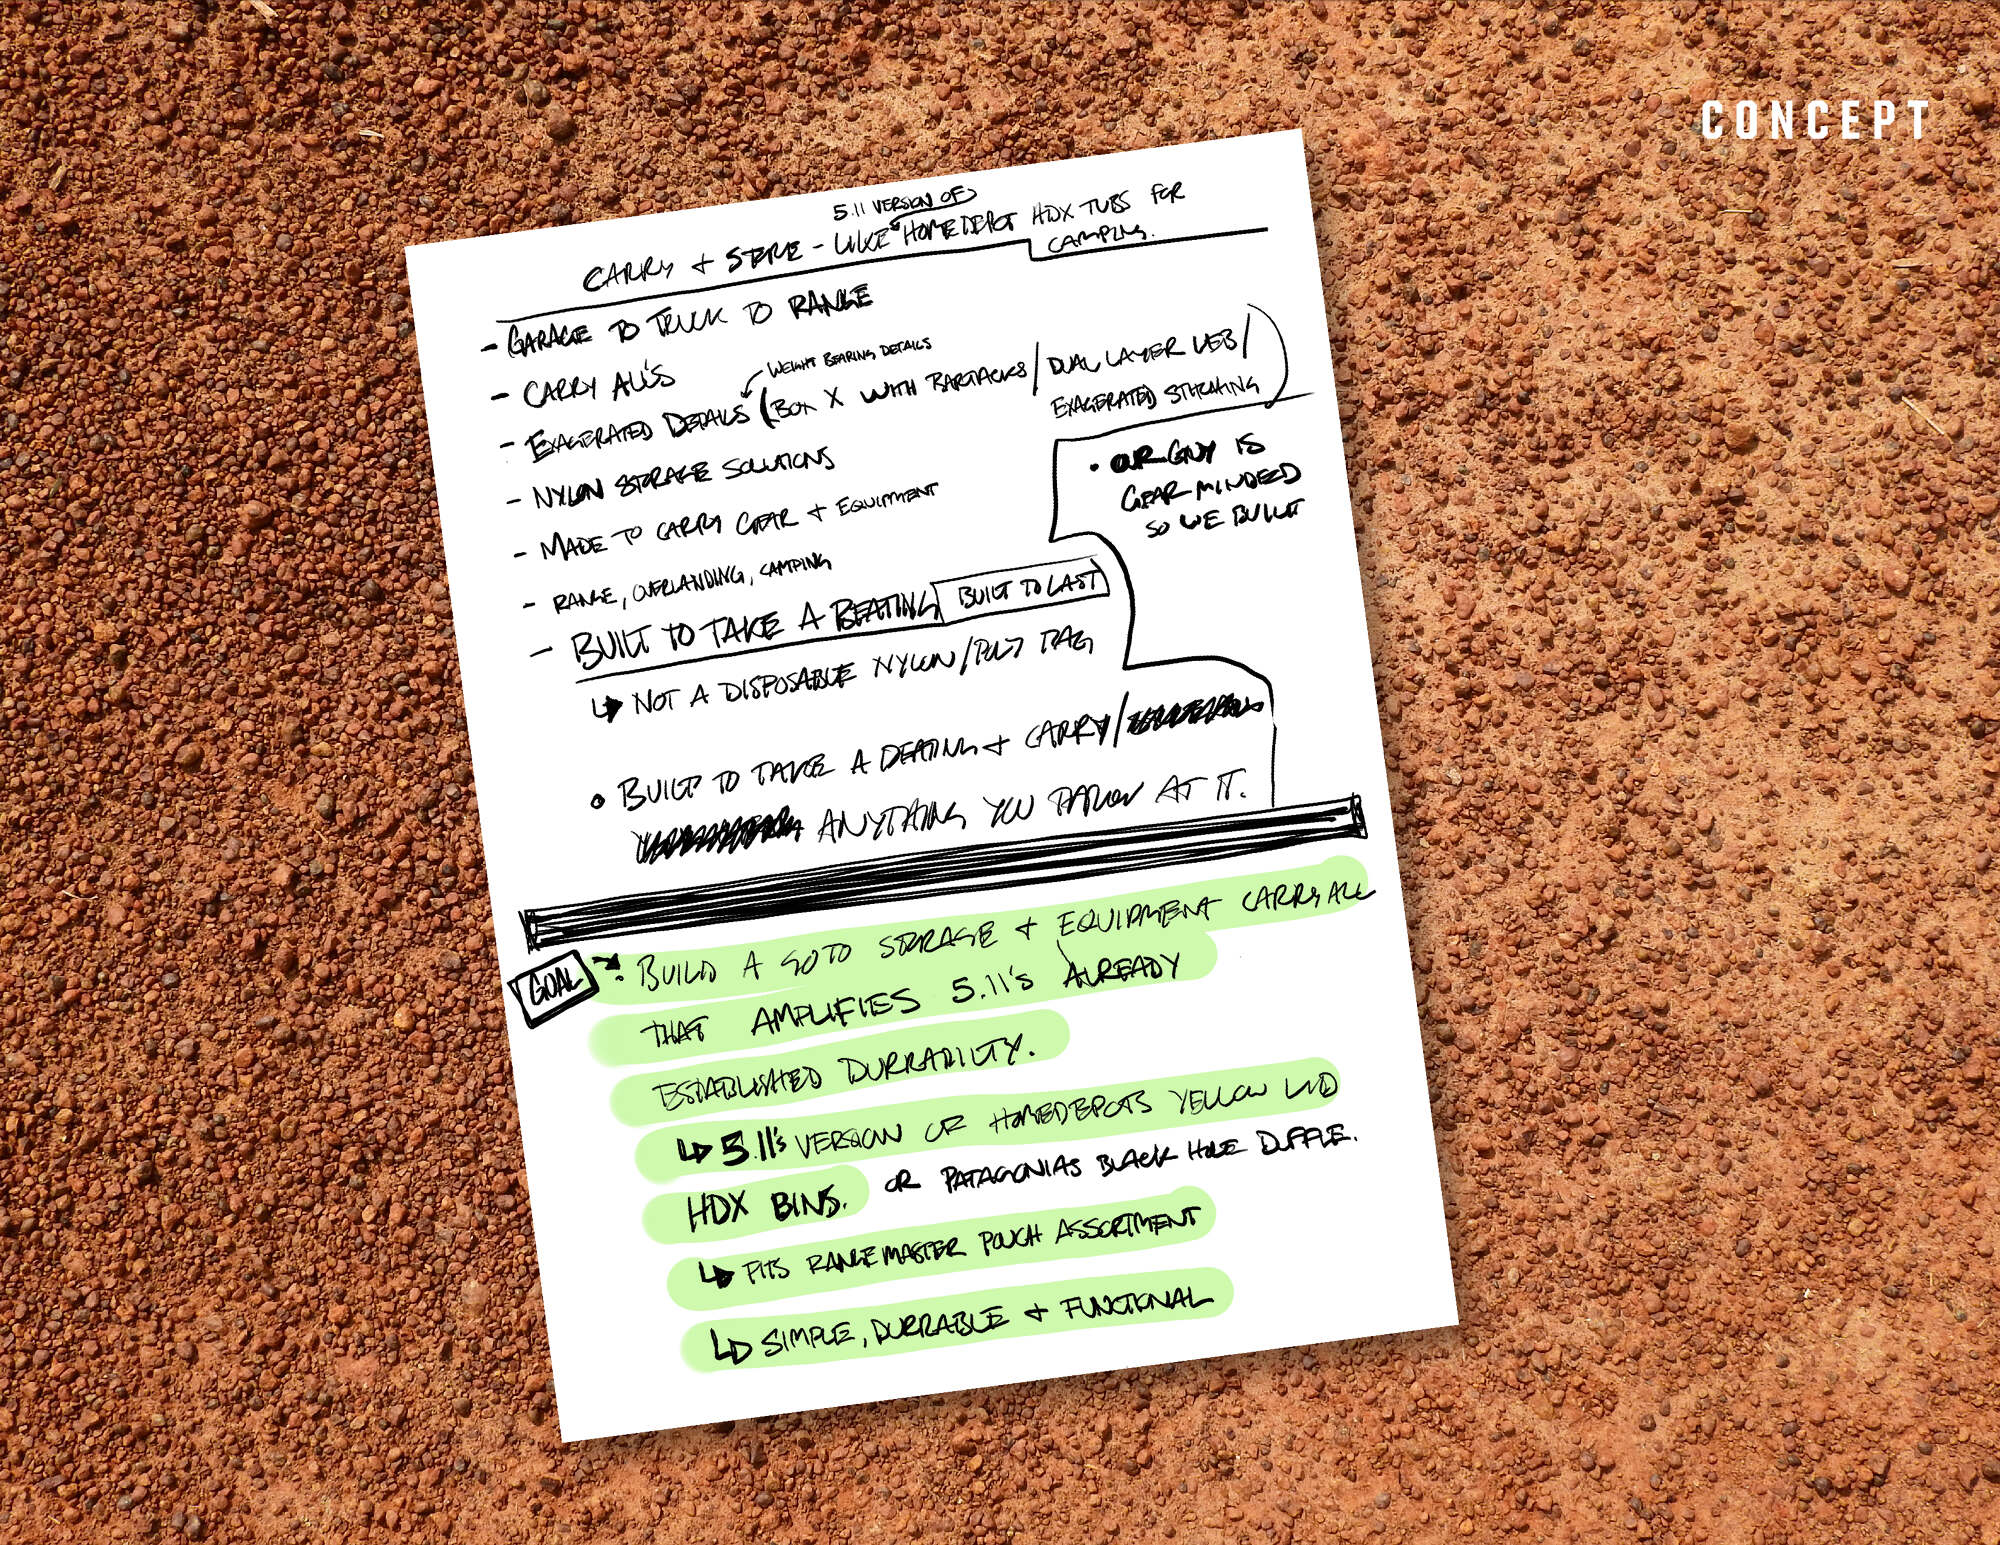 CONCEPT
5.11 VERSION OF
CARRY + STORE - LIKE HOMEDEPOT HDX TUBS FOR
CAMPING.
- GARAGE TO TRUCK TO RANGE
- CARRY ALL'S
WEIGHT BEARING DETAILS
- EXAGERATED DETAILS (BOX X WITH BARTACKS / DUAL LAYER WEB /
EXAGERATED STITCHING)
- NYLON STORAGE SOLUTIONS
- MADE TO CARRY GEAR + EQUIPMENT
- RANGE, OVERLANDING, CAMPING
- BUILT TO TAKE A BEATING BUILT TO LAST
↳ NOT A DISPOSABLE NYLON/POLY BAG
• OUR GUY IS
GEAR MINDED
SO WE BUILT
• BUILT TO TAKE A BEATING + CARRY/
ANYTHING YOU THROW AT IT.
GOAL → : BUILD A GOTO STORAGE + EQUIPMENT CARRY ALL
THAT AMPLIFIES 5.11'S ALREADY
ESTABLISHED DURRABILTY.
↳ 5.11's VERSION OF HOMEDEPOTS YELLOW LID
HDX BINS. OR PATAGONIAS BLACK HOLE DUFFLE.
↳ FITS RANGEMASTER POUCH ASSORTMENT
↳ SIMPLE, DURRABLE + FUNCTIONAL